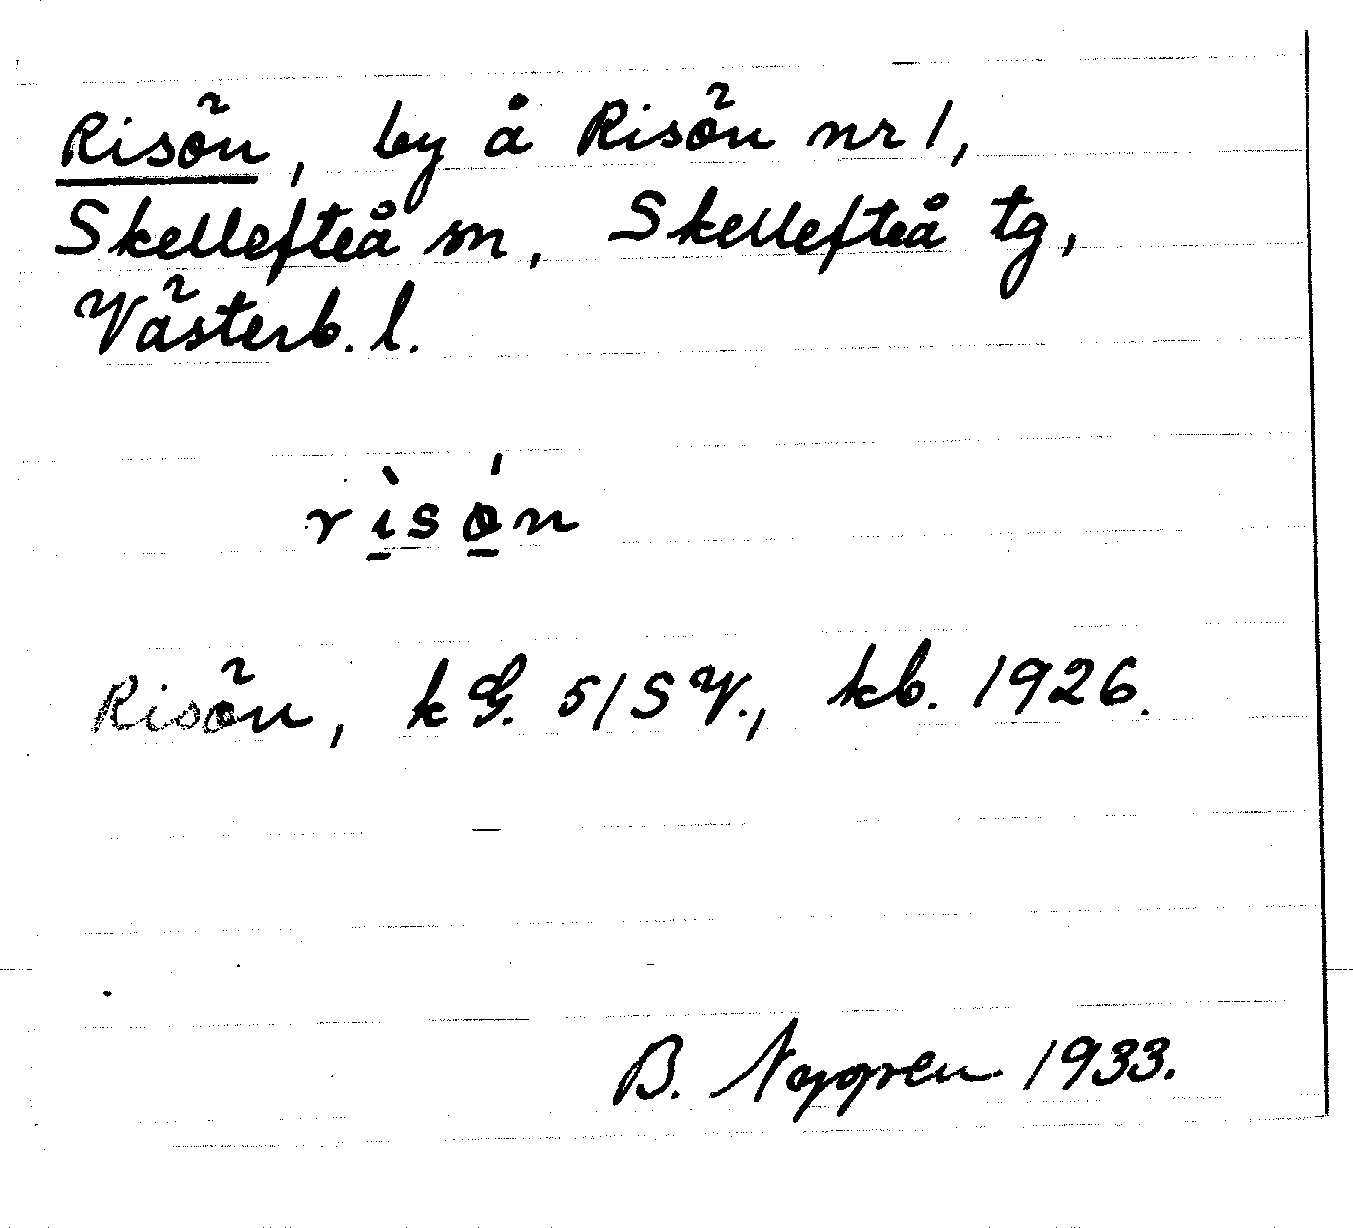 Risön, by å Risön nr 1,
Skellefteå sn, Skellefteå tg,
Västerb. l.
rı̱̀sǿ̱n
Risön, k G. 5/SV., kb. 1926.
B. Nygren 1933.